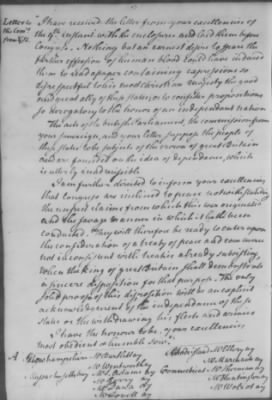 Letter to the Com.rs from Gr. B.
"I have received the letter from your excellencies of
the 9th instant with the enclosures and laid them before
Congress. Nothing but an earnest desire to spare the
further effusion of human blood could have induced
them to read a paper containing expressions so
disrespectful to his most christian majesty the good
and great ally of these states or to consider propositions
so derogatory to the honor of an independent nation
The acts of the british Parliament, the commission from
your sovereign, and your letter, suppose the people of
these states to be subjects of the crown of great Britain
and are founded on the idea of dependence, which
is utterly inadmissible.
I am further directed to inform your excellencies
that Congress are inclined to peace notwithstanding
the unjust claims from which this war originated
and the savage manner in which it hath been
conducted. They will therefore be ready to enter upon
the consideration of a treaty of peace and commerce
not inconsistent with treaties already subsisting
when the king of great Britain shall demonstrate
a sincere disposition for that purpose. The only
solid proof of this disposition will be an explicit
acknowledgement of the independence of these
states or the withdrawing his fleets and armies
I have the honour to be, your excellencies
most obedient & humble servt."
N. Hampshire Mr Bartlett ay
Mr Wentworth ay
Massachusetts bay Mr S. Adams ay
Mr Gerry ay
Mr Dana ay
Mr Lovell ay
Rhode island Mr Ellery ay
Mr Marchant ay
Connecticut Mr Sherman ay
Mr Huntington ay
Mr Wolcott ay